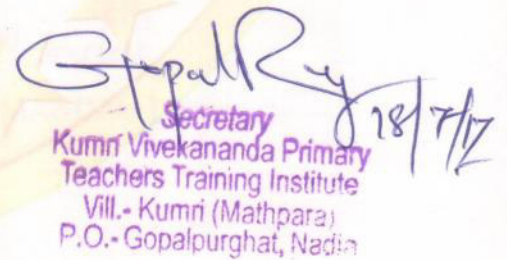 Gopal Roy
18/7/17
Secretary
Kumri Vivekananda Primary
Teachers Training Institute
Vill.- Kumri (Mathpara)
P.O.- Gopalpurghat, Nadia